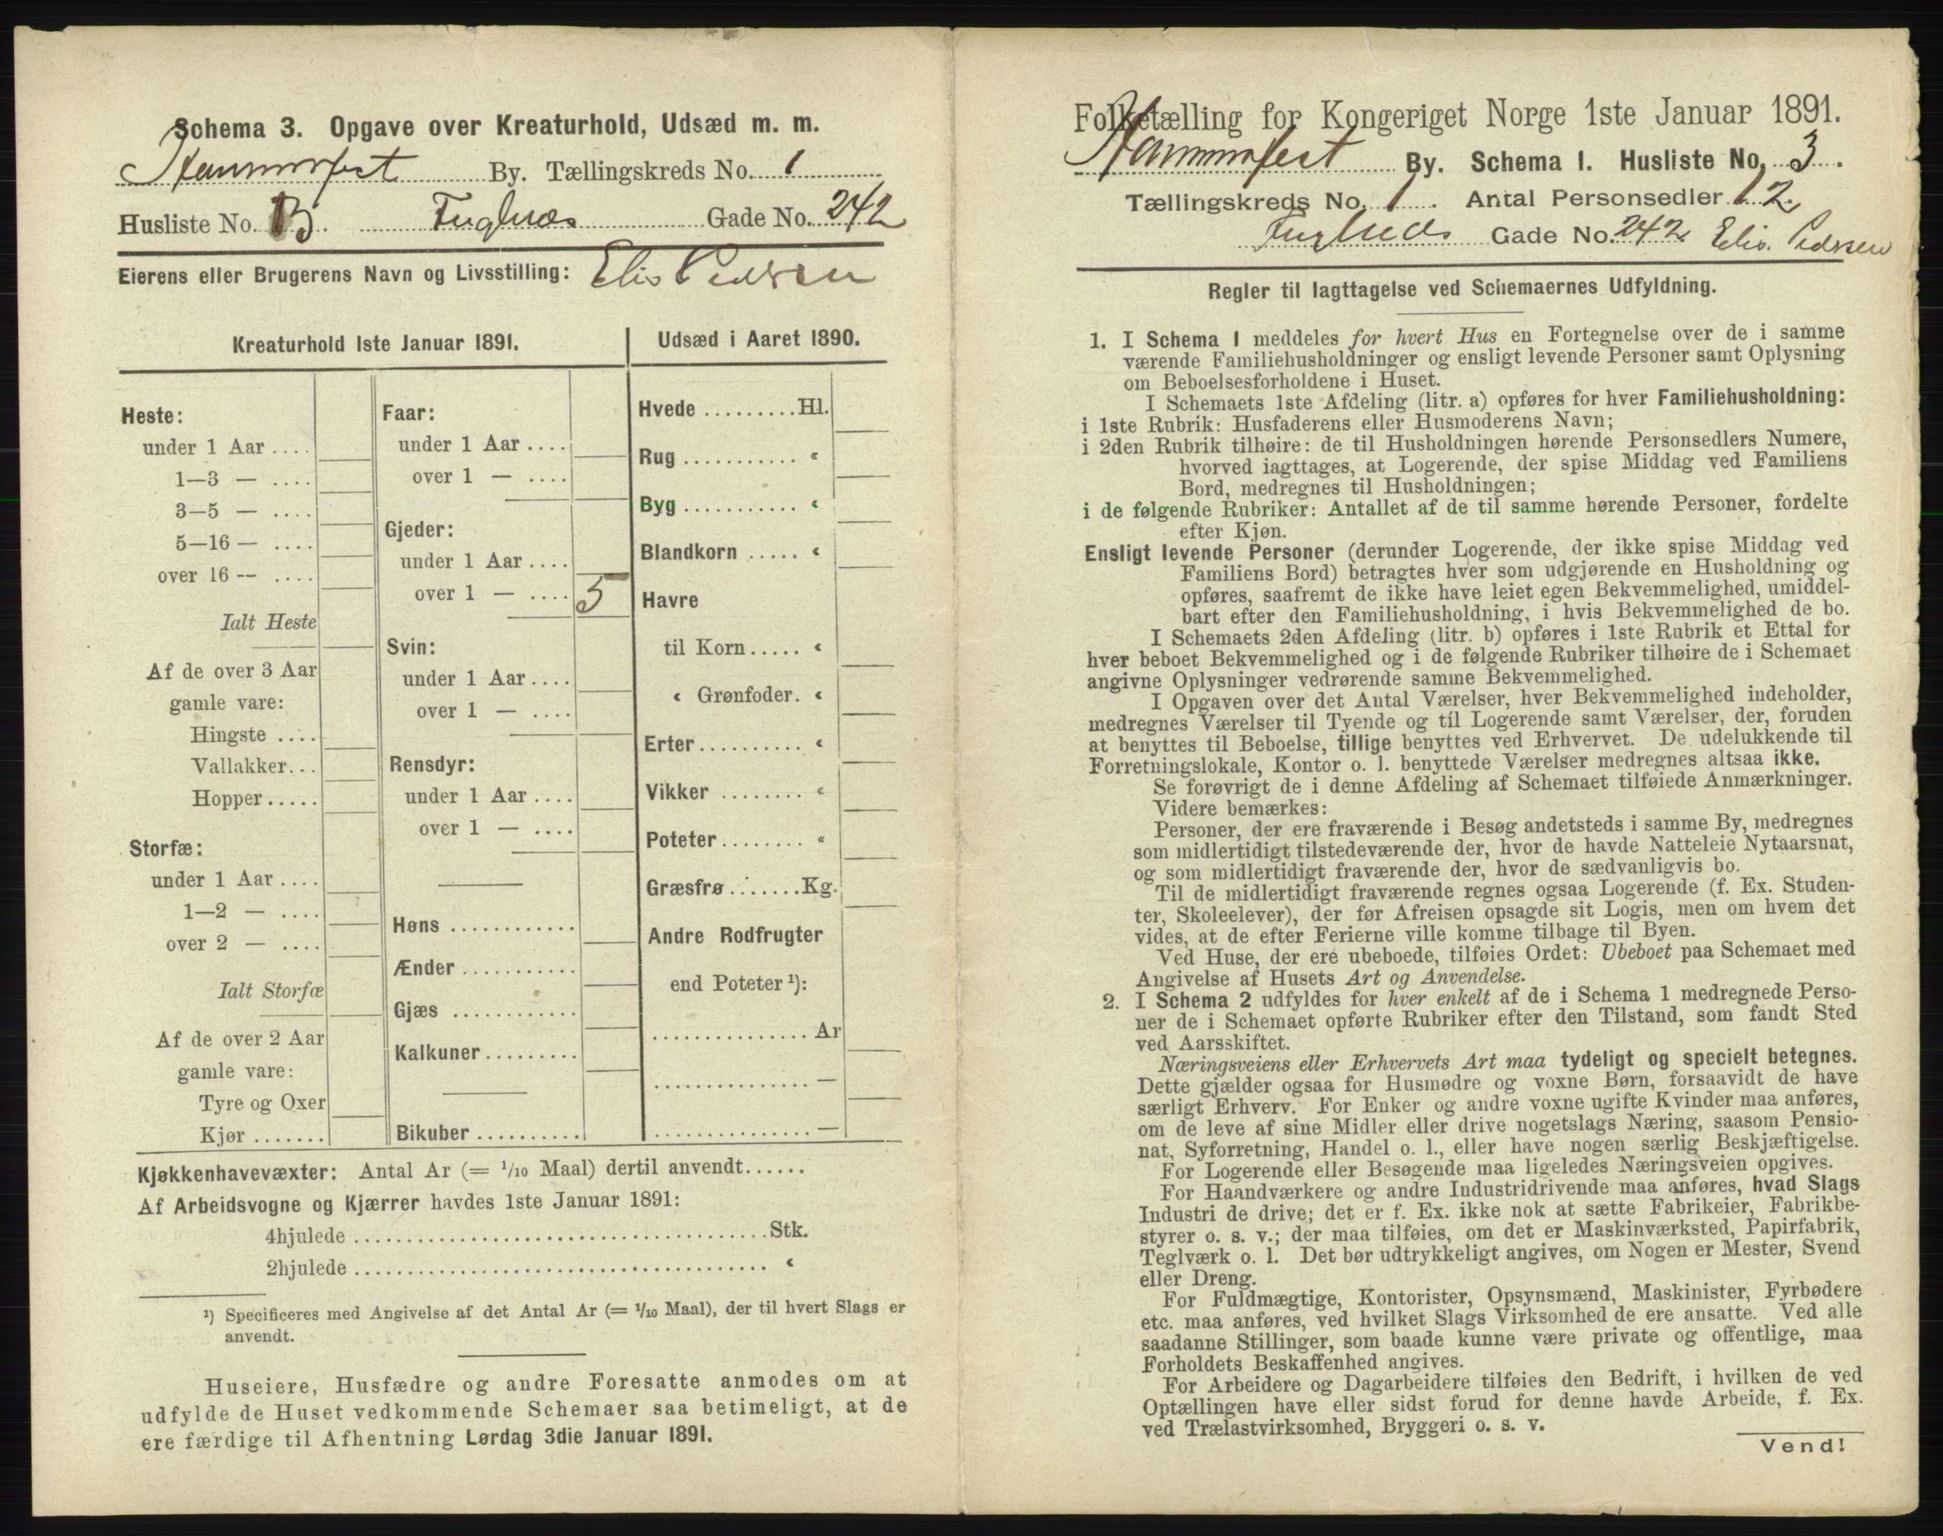 Schema 3. Opgave over Kreaturhold, Udsæd m. m.
Hammerfest By. Tællingskreds No. 1
Husliste No. 3. Fuglnæs Gade No. 242
Eierens eller Brugerens Navn og Livsstilling: Elis Pedersen
Kreaturhold 1ste Januar 1891.
Heste:
under 1 Aar ....
1—3 — ....
3—5 — ....
5—16 — ....
over 16 -- ....
Ialt Heste
Af de over 3 Aar
gamle vare:
Hingste ....
Vallakker...
Hopper .....
Storfæ:
under 1 Aar ....
1—2 — ....
over 2 — ....
Ialt Storfæ
Af de over 2 Aar
gamle vare:
Tyre og Oxer
Kjør .......
Faar:
under 1 Aar ....
over 1 — ....
Gjeder:
under 1 Aar ....
over 1 — .... 5
Svin:
under 1 Aar ....
over 1 — ....
Rensdyr:
under 1 Aar ....
over 1 — ....
Høns ............
Ænder ...........
Gjæs ............
Kalkuner.........
Bikuber ..........
Udsæd i Aaret 1890.
Hvede .........Hl.
Rug ........... “
Byg ........... “
Blandkorn ..... “
Havre
til Korn ..... “
“ Grønfoder. “
Erter .......... “
Vikker ........ “
Poteter ........ “
Græsfrø .......Kg.
Andre Rodfrugter
end Poteter ¹):
............... Ar
............... —
............... —
Kjøkkenhavevæxter: Antal Ar (= 1/10 Maal) dertil anvendt......
Af Arbeidsvogne og Kjærrer havdes 1ste Januar 1891:
4hjulede ........................................Stk.
2hjulede ........................................ “
¹) Specificeres med Angivelse af det Antal Ar (= 1/10 Maal), der til hvert Slags er
anvendt.
Huseiere, Husfædre og andre Foresatte anmodes om at
udfylde de Huset vedkommende Schemaer saa betimeligt, at de
ere færdige til Afhentning Lørdag 3die Januar 1891.
Folketælling for Kongeriget Norge 1ste Januar 1891.
Hammerfest By. Schema 1. Husliste No. 3.
Tællingskreds No. 1. Antal Personsedler 12.
Fuglnæs Gade No. 242 Elis. Pedersen
Regler til Iagttagelse ved Schemaernes Udfyldning.
1. I Schema 1 meddeles for hvert Hus en Fortegnelse over de i samme
værende Familiehusholdninger og ensligt levende Personer samt Oplysning
om Beboelsesforholdene i Huset.
I Schemaets 1ste Afdeling (litr. a) opføres for hver Familiehusholdning:
i 1ste Rubrik: Husfaderens eller Husmoderens Navn;
i 2den Rubrik tilhøire: de til Husholdningen hørende Personsedlers Numere,
hvorved iagttages, at Logerende, der spise Middag ved Familiens
Bord, medregnes til Husholdningen;
i de følgende Rubriker: Antallet af de til samme hørende Personer, fordelte
efter Kjøn.
Ensligt levende Personer (derunder Logerende, der ikke spise Middag ved
Familiens Bord) betragtes hver som udgjørende en Husholdning og
opføres, saafremt de ikke have leiet egen Bekvemmelighed, umiddel-
bart efter den Familiehusholdning, i hvis Bekvemmelighed de bo.
I Schemaets 2den Afdeling (litr. b) opføres i 1ste Rubrik et Ettal for
hver beboet Bekvemmelighed og i de følgende Rubriker tilhøire de i Schemaet
angivne Oplysninger vedrørende samme Bekvemmelighed.
I Opgaven over det Antal Værelser, hver Bekvemmelighed indeholder,
medregnes Værelser til Tyende og til Logerende samt Værelser, der, foruden
at benyttes til Beboelse, tillige benyttes ved Erhvervet. De udelukkende til
Forretningslokale, Kontor o. l. benyttede Værelser medregnes altsaa ikke.
Se forøvrigt de i denne Afdeling af Schemaet tilføiede Anmærkninger.
Videre bemærkes:
Personer, der ere fraværende i Besøg andetsteds i samme By, medregnes
som midlertidigt tilstedeværende der, hvor de havde Natteleie Nytaarsnat,
og som midlertidigt fraværende der, hvor de sædvanligvis bo.
Til de midlertidigt fraværende regnes ogsaa Logerende (f. Ex. Studen-
ter, Skoleelever), der før Afreisen opsagde sit Logis, men om hvem det
vides, at de efter Ferierne ville komme tilbage til Byen.
Ved Huse, der ere ubeboede, tilføies Ordet: Ubeboet paa Schemaet med
Angivelse af Husets Art og Anvendelse.
2. I Schema 2 udfyldes for hver enkelt af de i Schema 1 medregnede Perso-
ner de i Schemaet opførte Rubriker efter den Tilstand, som fandt Sted
ved Aarsskiftet.
Næringsveiens eller Erhvervets Art maa tydeligt og specielt betegnes.
Dette gjælder ogsaa for Husmødre og voxne Børn, forsaavidt de have
særligt Erhverv. For Enker og andre voxne ugifte Kvinder maa anføres,
om de leve af sine Midler eller drive nogetslags Næring, saasom Pensio-
nat, Syforretning, Handel o. l., eller have nogen særlig Beskjæftigelse.
For Logerende eller Besøgende maa ligeledes Næringsveien opgives.
For Haandværkere og andre Industridrivende maa anføres, hvad Slags
Industri de drive; det er f. Ex. ikke nok at sætte Fabrikeier, Fabrikbe-
styrer o. s. v.; der maa tilføies, om det er Maskinværksted, Papirfabrik,
Teglværk o. l. Det bør udtrykkeligt angives, om Nogen er Mester, Svend
eller Dreng.
For Fuldmægtige, Kontorister, Opsynsmænd, Maskinister, Fyrbødere
etc. maa anføres, ved hvilket Slags Virksomhed de ere ansatte. Ved alle
saadanne Stillinger, som baade kunne være private og offentlige, maa
Forholdets Beskaffenhed angives.
For Arbeidere og Dagarbeidere tilføies den Bedrift, i hvilken de ved
Optællingen have eller sidst forud for denne havde Arbeide, f. Ex.
ved Trælastvirksomhed, Bryggeri o. s. v.
Vend!